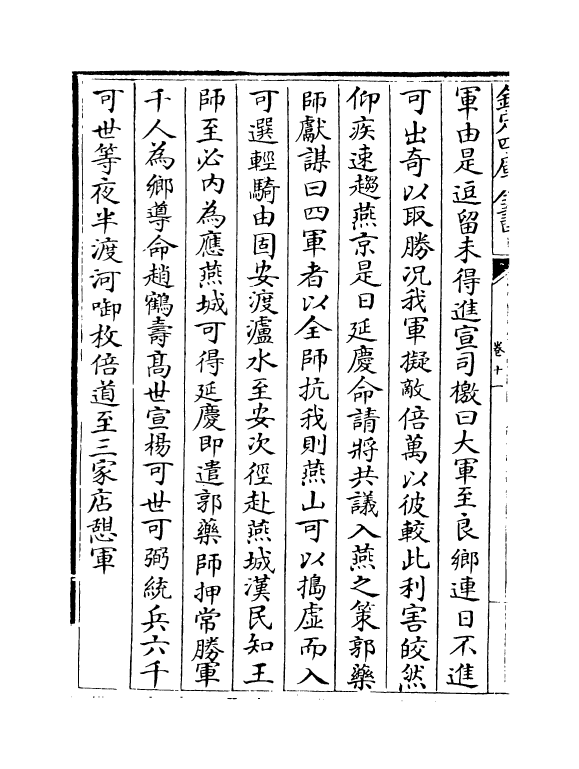 欽定四庫全書
卷十一
軍由是逗留未得進宣司檄曰大軍至良鄉連日不進
可出奇以取勝況我軍擬敵倍萬以彼較此利害皎然
仰疾速趨燕京是日延慶命請將共議入燕之策郭藥
師獻謀曰四軍者以全師抗我則燕山可以搗虛而入
可選輕騎由固安渡瀘水至安次徑赴燕城漢民知王
師至必内為應燕城可得延慶即遣郭藥師押常勝軍
千人為鄉導命趙鶴壽髙世宣楊可世可弼統兵六千
可世等夜半渡河啣枚倍道至三家店憇軍